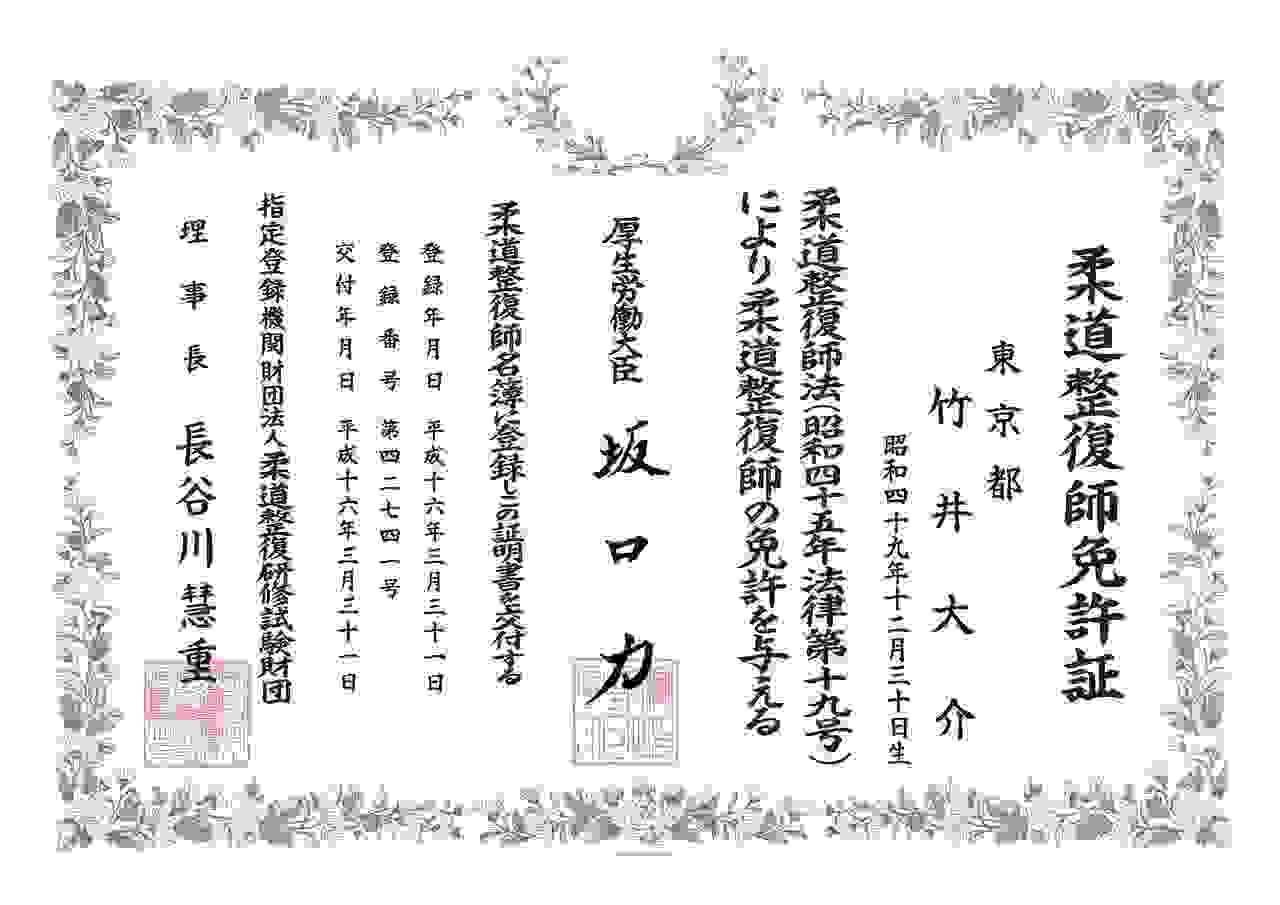 柔道整復師免許証
東京都
竹井大介
昭和四十九年十二月三十日生
柔道整復師法(昭和四十五年法律第十九号)
により柔道整復師の免許を与える
厚生労働大臣 坂口力
柔道整復師名簿に登録しこの証明書を交付する
登録年月日 平成十六年三月三十一日
登録番号 第四二七四一号
交付年月日 平成十六年三月三十一日
指定登録機関財団法人柔道整復研修試験財団
理事長 長谷川慧重